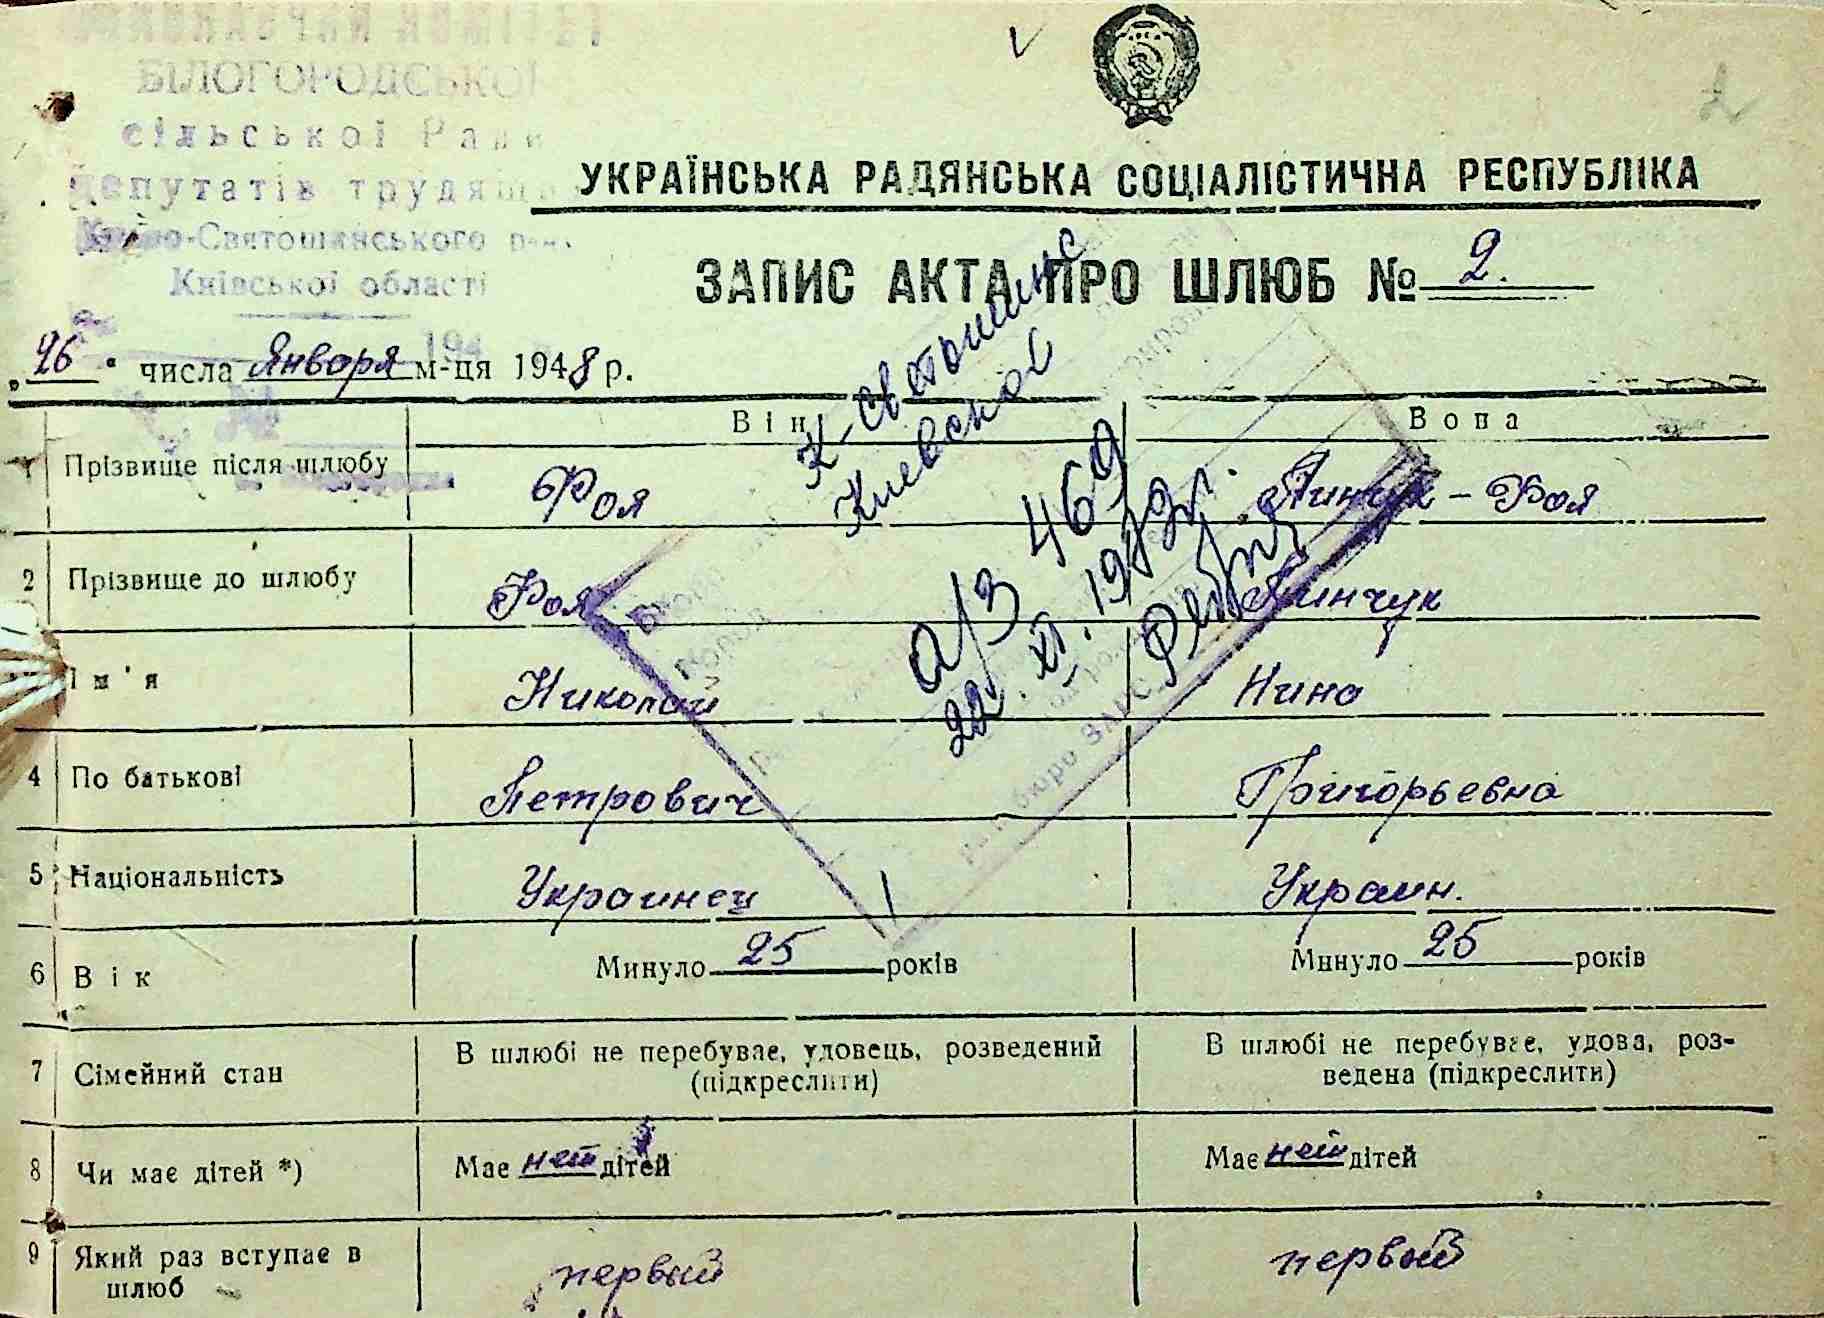 БІЛОГОРОДСЬКОЇ
сільської Ради
депутатів трудящ
Києво-Святошинського р-ну
Київської області
УКРАЇНСЬКА РАДЯНСЬКА СОЦІАЛІСТИЧНА РЕСПУБЛІКА
ЗАПИС АКТА ПРО ШЛЮБ № 2.
„26" числа Января м-ця 1948 р.
Він Вона
1 Прізвище після шлюбу Фоя Пинчук - Фоя
2 Прізвище до шлюбу Фоя Пинчук
Ім'я Николай Нина
4 По батькові Петрович Григорьевна
5 Національність Украинец Украин.
6 Вік Минуло 25 років Минуло 25 років
7 Сімейний стан В шлюбі не перебуває, удовець, розведений (підкреслити) В шлюбі не перебуває, удова, роз-
ведена (підкреслити)
8 Чи має дітей *) Має нет дітей Має нет дітей
9 Який раз вступає в
шлюб первый первый
К-Святошинс
Киевской
а/з 469
22.XI.19
бюро ЗАГС